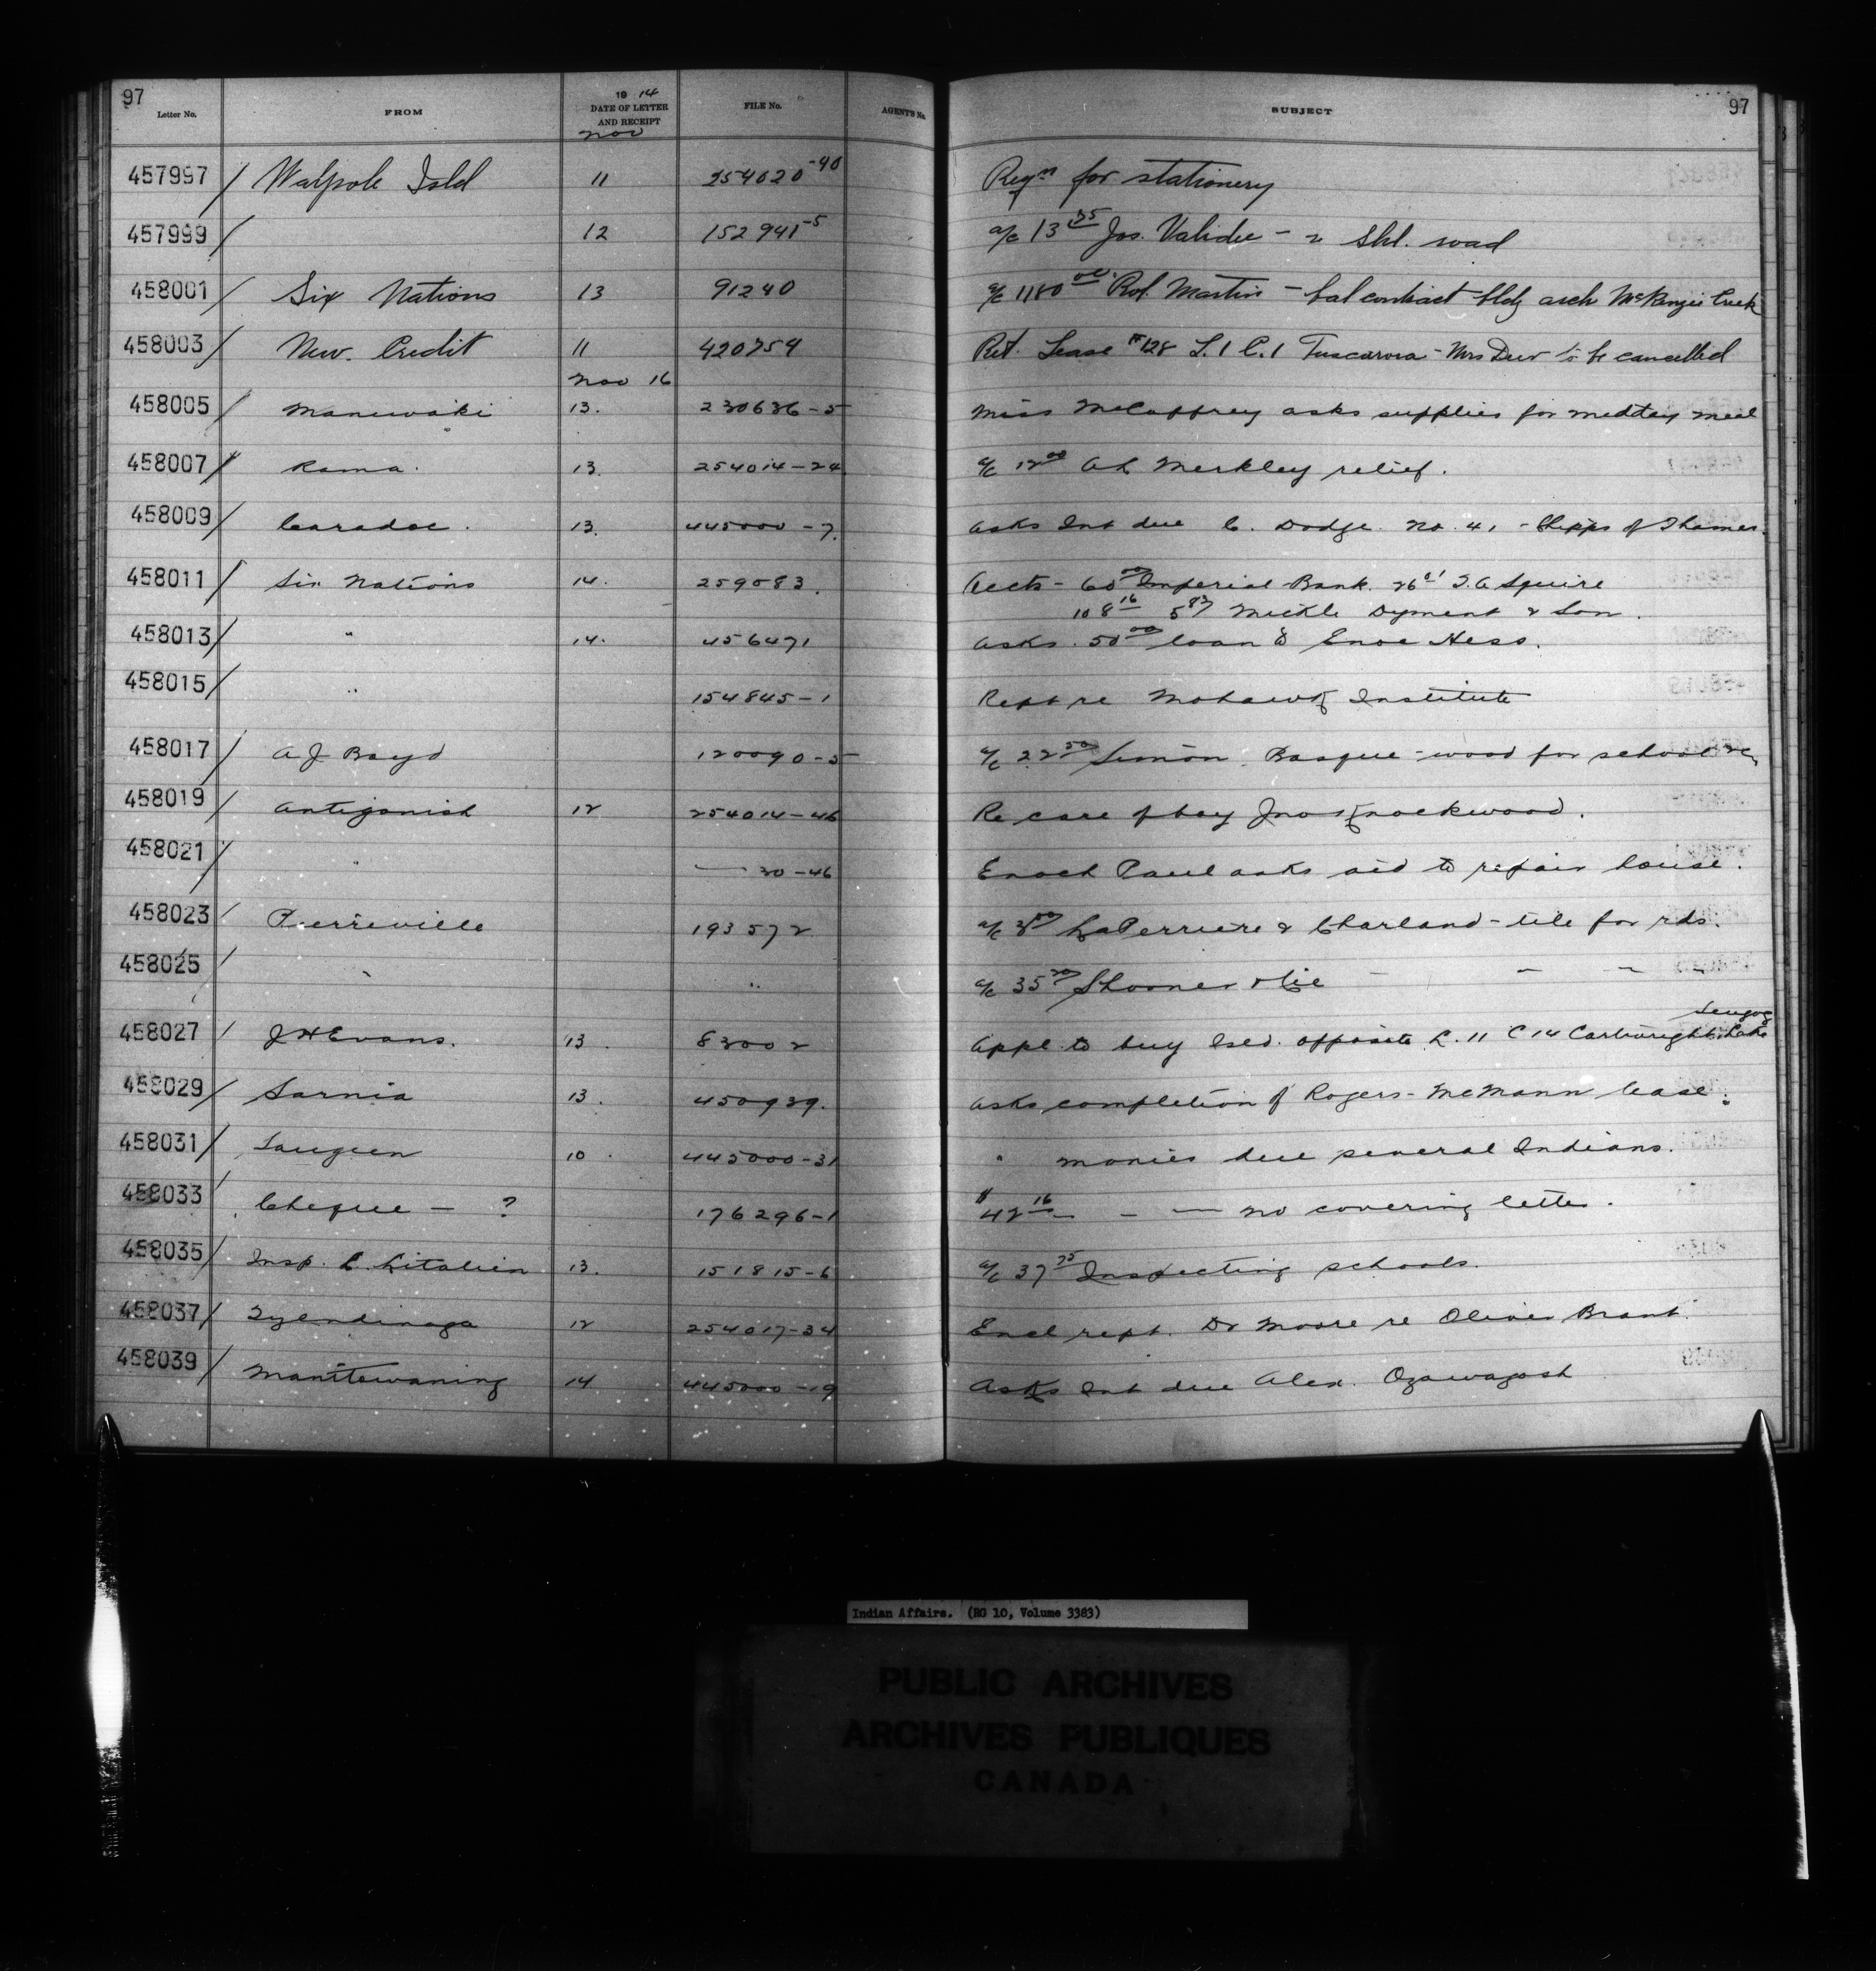 97 Letter No. FROM 1914 DATE OF LETTER AND RECEIPT FILE No. AGENT'S No. SUBJECT 97
Nov
457997 / Walpole Isld 11 254020-40 Reqn for stationery
457999 / 12 152941-5 a/c 13 75 Jos. - Shl. road
458001 / Six Nations 13 91240 a/c 1180 00 Rob. Martin - bal contract bldg arch McKenzie Creek
458003 / New. Credit 11 420754 Ret. Lease #128 L. 1 C. 1 Tuscarora - Mrs to be cancelled
Nov 16
458005 / Maniwaki 13. 230636-5 Miss McCaffrey asks supplies for midday meal
458007 / Rama. 13. 254014-24 a/c 12 00 Merkley relief.
458009 / Caradoc. 13. 445000-7. Asks Int due C. Dodge. No. 41 - Chipps of Thames.
458011 / Six Nations 14. 259083. Accts - 60 00 Imperial Bank. 26 01 Squire
108 16 5 87 Mickle Dyment & Son.
458013 / " 14. 456471 Asks 50 00 loan to Hess.
458015 / " 154845-1 Rept re Mohawk Institute
458017 / A J Boyd 120090-5 a/c 22 50 Simon Basque - wood for school &c
458019 / Antigonish 12 254014-46 Re care of boy Jno Knockwood.
458021 / " — 30-46 Enoch Paul asks aid to repair house.
458023 / Pierreville 193572 a/c 3 00 LaPerriere & Charland - tile for rds.
458025 / " " a/c 35 20 Shooner & Cie - - -
Scugog
458027 / J H Evans. 13. 83002 Appl. to buy Isld. opposite L. 11 C 14 Cartwright. Lake
458029 / Sarnia 13. 450939. Asks completion of Rogers - McMann lease.
458031 / Saugeen 10. 445000-31 " monies due several Indians.
458033 / Cheque - ? 176296-1 $42 16 - - — no covering letter.
458035 / Insp. L. Litalien 13. 151815-6 a/c 37 75 Inspecting schools.
458037 / Tyendinaga 12 254017-34 Encl rept. Dr Moore re Oliver Brant.
458039 / Manitowaning 14 445000-19 Asks Int due Alex. Ozawagosh
Indian Affairs. (RG 10, Volume 3383)
PUBLIC ARCHIVES
ARCHIVES PUBLIQUES
CANADA